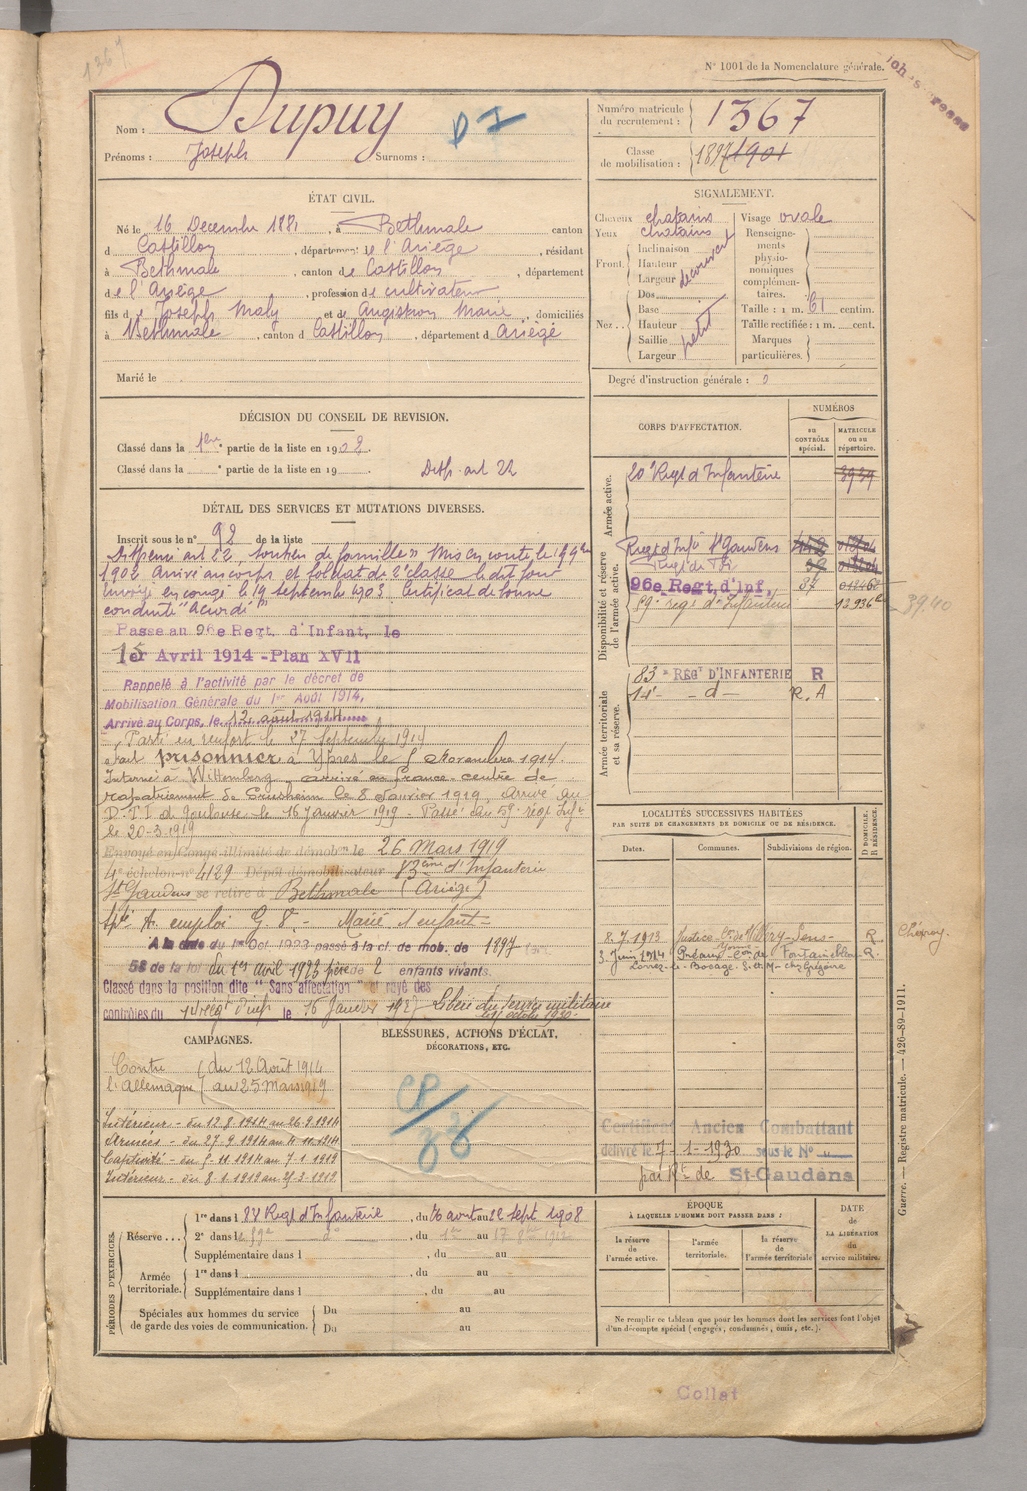 1367
N° 1001 de la Nomenclature générale.
Nom : Dupuy
Prénoms : Joseph Surnoms :
Numéro matricule du recrutement : 1367
Classe de mobilisation : 1897 1901
ÉTAT CIVIL.
Né le 16 Decembre 1881, à Bethmale canton
d Castillon, département de l'Ariège, résidant
à Bethmale, canton de Castillon, département
de l'Ariège, profession de cultivateur
fils de Joseph Maly et de Angistrou Marie, domiciliés
à Bethmale, canton d Castillon, département d Ariège
Marié le
SIGNALEMENT.
Cheveux chatains
Yeux chatains
Front. Inclinaison
Hauteur
Largeur
decouvert
Nez Dos
Base
Hauteur
Saillie
Largeur
petit
Visage ovale
Renseignements physionomiques complémentaires.
Taille : 1 m. 61 centim.
Taille rectifiée : 1 m. cent.
Marques particulières.
Degré d'instruction générale : 0
DÉCISION DU CONSEIL DE REVISION.
Classé dans la 1ère partie de la liste en 1902.
Classé dans la ° partie de la liste en 19
Disp. art 22
CORPS D'AFFECTATION.
NUMÉROS
au CONTRÔLE spécial.
MATRICULE ou au répertoire.
Armée active.
20e Regt d'Infanterie 3939
Disponibilité et réserve de l'armée active.
Regt d'Infie St Gaudens
96e Regt. d'Inf.
59e regt d'Infanterie
39.40
Armée territoriale et sa réserve.
83e RÉGt D'INFANTERIE R
14e - d - R. A
DÉTAIL DES SERVICES ET MUTATIONS DIVERSES.
Inscrit sous le n° 92 de la liste
Dispensé art 22, "soutien de famille" Mis en route le
1902 Arrivé au corps et soldat de 2e classe le dit jour
Envoyé en congé le 19 septembre 1903. Certificat de bonne
conduite "Accordé"
Passe au 96e Regt. d'Infant. le
1er Avril 1914 - Plan XVII
Rappelé à l'activité par le décret de
Mobilisation Générale du 1er Août 1914,
Arrivé au Corps, le 12 août 1914
Parti en renfort le 27 Septembre 1914
prisonnier à Ypres le 5 Novembre 1914.
Interné à Wittemberg arrivé en France centre de
rapatriement de le 8 Janvier 1919, Arrivé au
D.T.I de Toulouse le 16 Janvier 1919 - Passé au 59e régt Infie
le 20-3-1919
Envoyé en congé illimité de démobon le 26 Mars 1919
4e échelon n° 4129 Dépôt démobilisateur 83ème d'Infanterie
St Gaudens se retire à Bethmale (Ariège)
A. emploi G. V. - Marié 1 enfant
A la date du 1er Oct. 1923 passé à la cl. de mob. de 1897
58 de la loi du 1er avril 1923 père de 2 enfants vivants.
Classé dans la position dite "Sans affectation" et rayé des
contrôles du 14e régt d'inf le 15 Janvier 1927 Libéré du service militaire
octobre 1930
LOCALITÉS SUCCESSIVES HABITÉES
PAR SUITE DE CHANGEMENTS DE DOMICILE OU DE RÉSIDENCE.
Dates. Communes. Subdivisions de région. D DOMICILE. R RÉSIDENCE.
8.7.1913 Sens R Chéroy.
3 Juin 1914 Préaux Fontainebleau R.
Lorrez-le-Bocage S. et M. chez Grégoire
CAMPAGNES.
Contre l'Allemagne (du 12 Août 1914
au 25 Mars 1919
Intérieur - du 12.8.1914 au 26.9.1914
Armées - du 27-9 1914 au 4.11.1914
Captivité - du 5-11.1914 au 7-1-1919
Intérieur - du 8-1.1919 au 25-3-1919
BLESSURES, ACTIONS D'ÉCLAT, DÉCORATIONS, ETC.
Certificat Ancien Combattant
délivré le 7-1-1930 sous le N° "
par Rt de St-Gaudens
PÉRIODES D'EXERCICES.
Réserve... 1re dans l 88 Regt d'Infanterie, du 26 aout au 22 sept 1908
2e dans le 59e d°, du 1er au 17 1912
Supplémentaire dans l, du au
Armée territoriale. 1re dans l, du au
Supplémentaire dans l, du au
Spéciales aux hommes du service de garde des voies de communication. Du au
Du au
ÉPOQUE
À LAQUELLE L'HOMME DOIT PASSER DANS :
la réserve de l'armée active.
l'armée territoriale.
la réserve de l'armée territoriale
DATE de LA LIBÉRATION du service militaire.
Ne remplir ce tableau que pour les hommes dont les services font l'objet
d'un décompte spécial (engagés, condamnés, omis, etc.).
Guerre. — Registre matricule. — 426-89-1911.
Collat